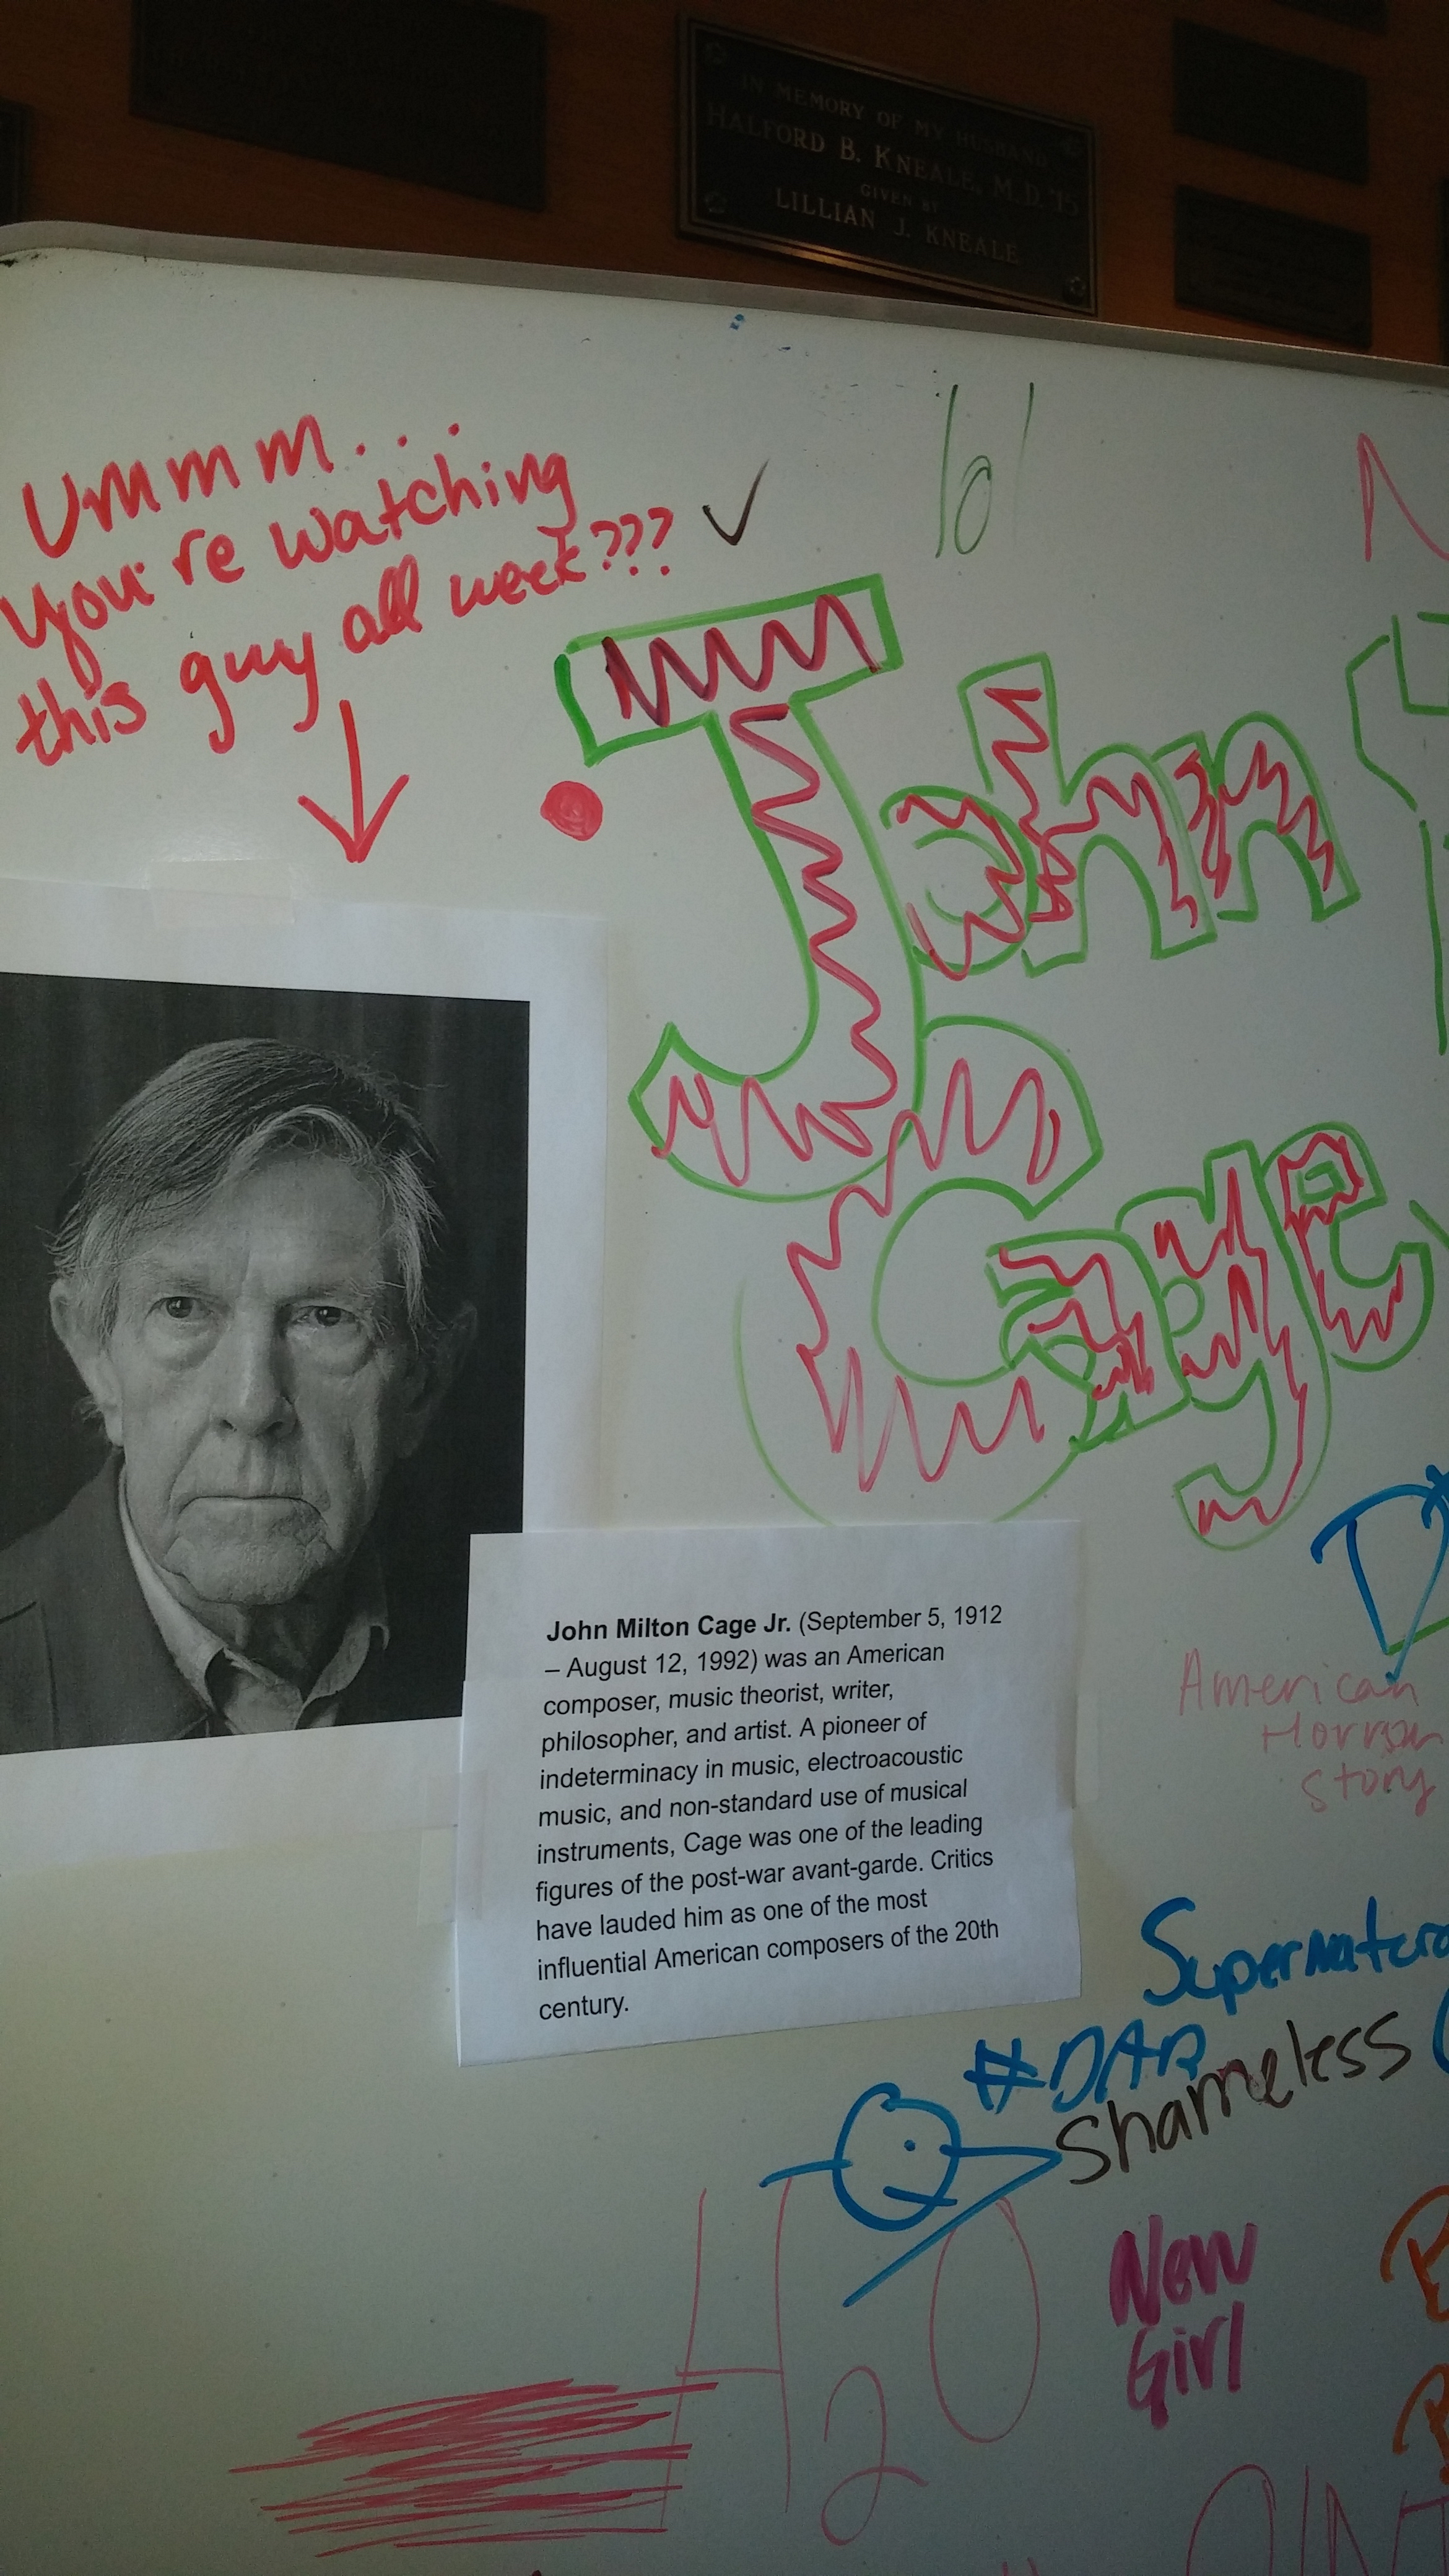 IN MEMORY OF MY HUSBAND
HALFORD B. KNEALE, M.D. '15
GIVEN BY
LILLIAN J. KNEALE
Ummm...
you're watching
this guy all week???
lol
John
Cage
John Milton Cage Jr. (September 5, 1912
– August 12, 1992) was an American
composer, music theorist, writer,
philosopher, and artist. A pioneer of
indeterminacy in music, electroacoustic
music, and non-standard use of musical
instruments, Cage was one of the leading
figures of the post-war avant-garde. Critics
have lauded him as one of the most
influential American composers of the 20th
century.
American
Horror
Story
Supernatura
#DAB
Shameless
420
New
Girl